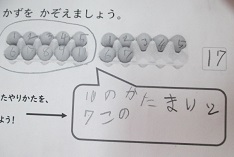 かずを かぞえましょう。
17
たやりかたを、
よう!
10のかたまりと
7この